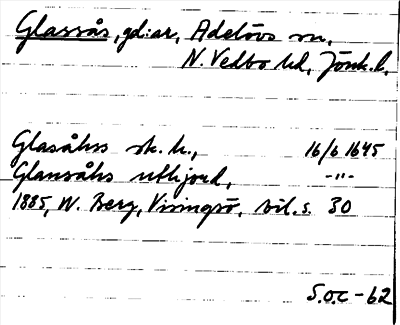 Glassås, gd:ar, Adelövs sn,
N. Vedbo hd, Jönk. l.
Glasåhss sk. h., 16/6 1645
Glansåhs utkjord, -"-
1885, W. Berg, Visingsö, bil. s. 30
S.O.C -62